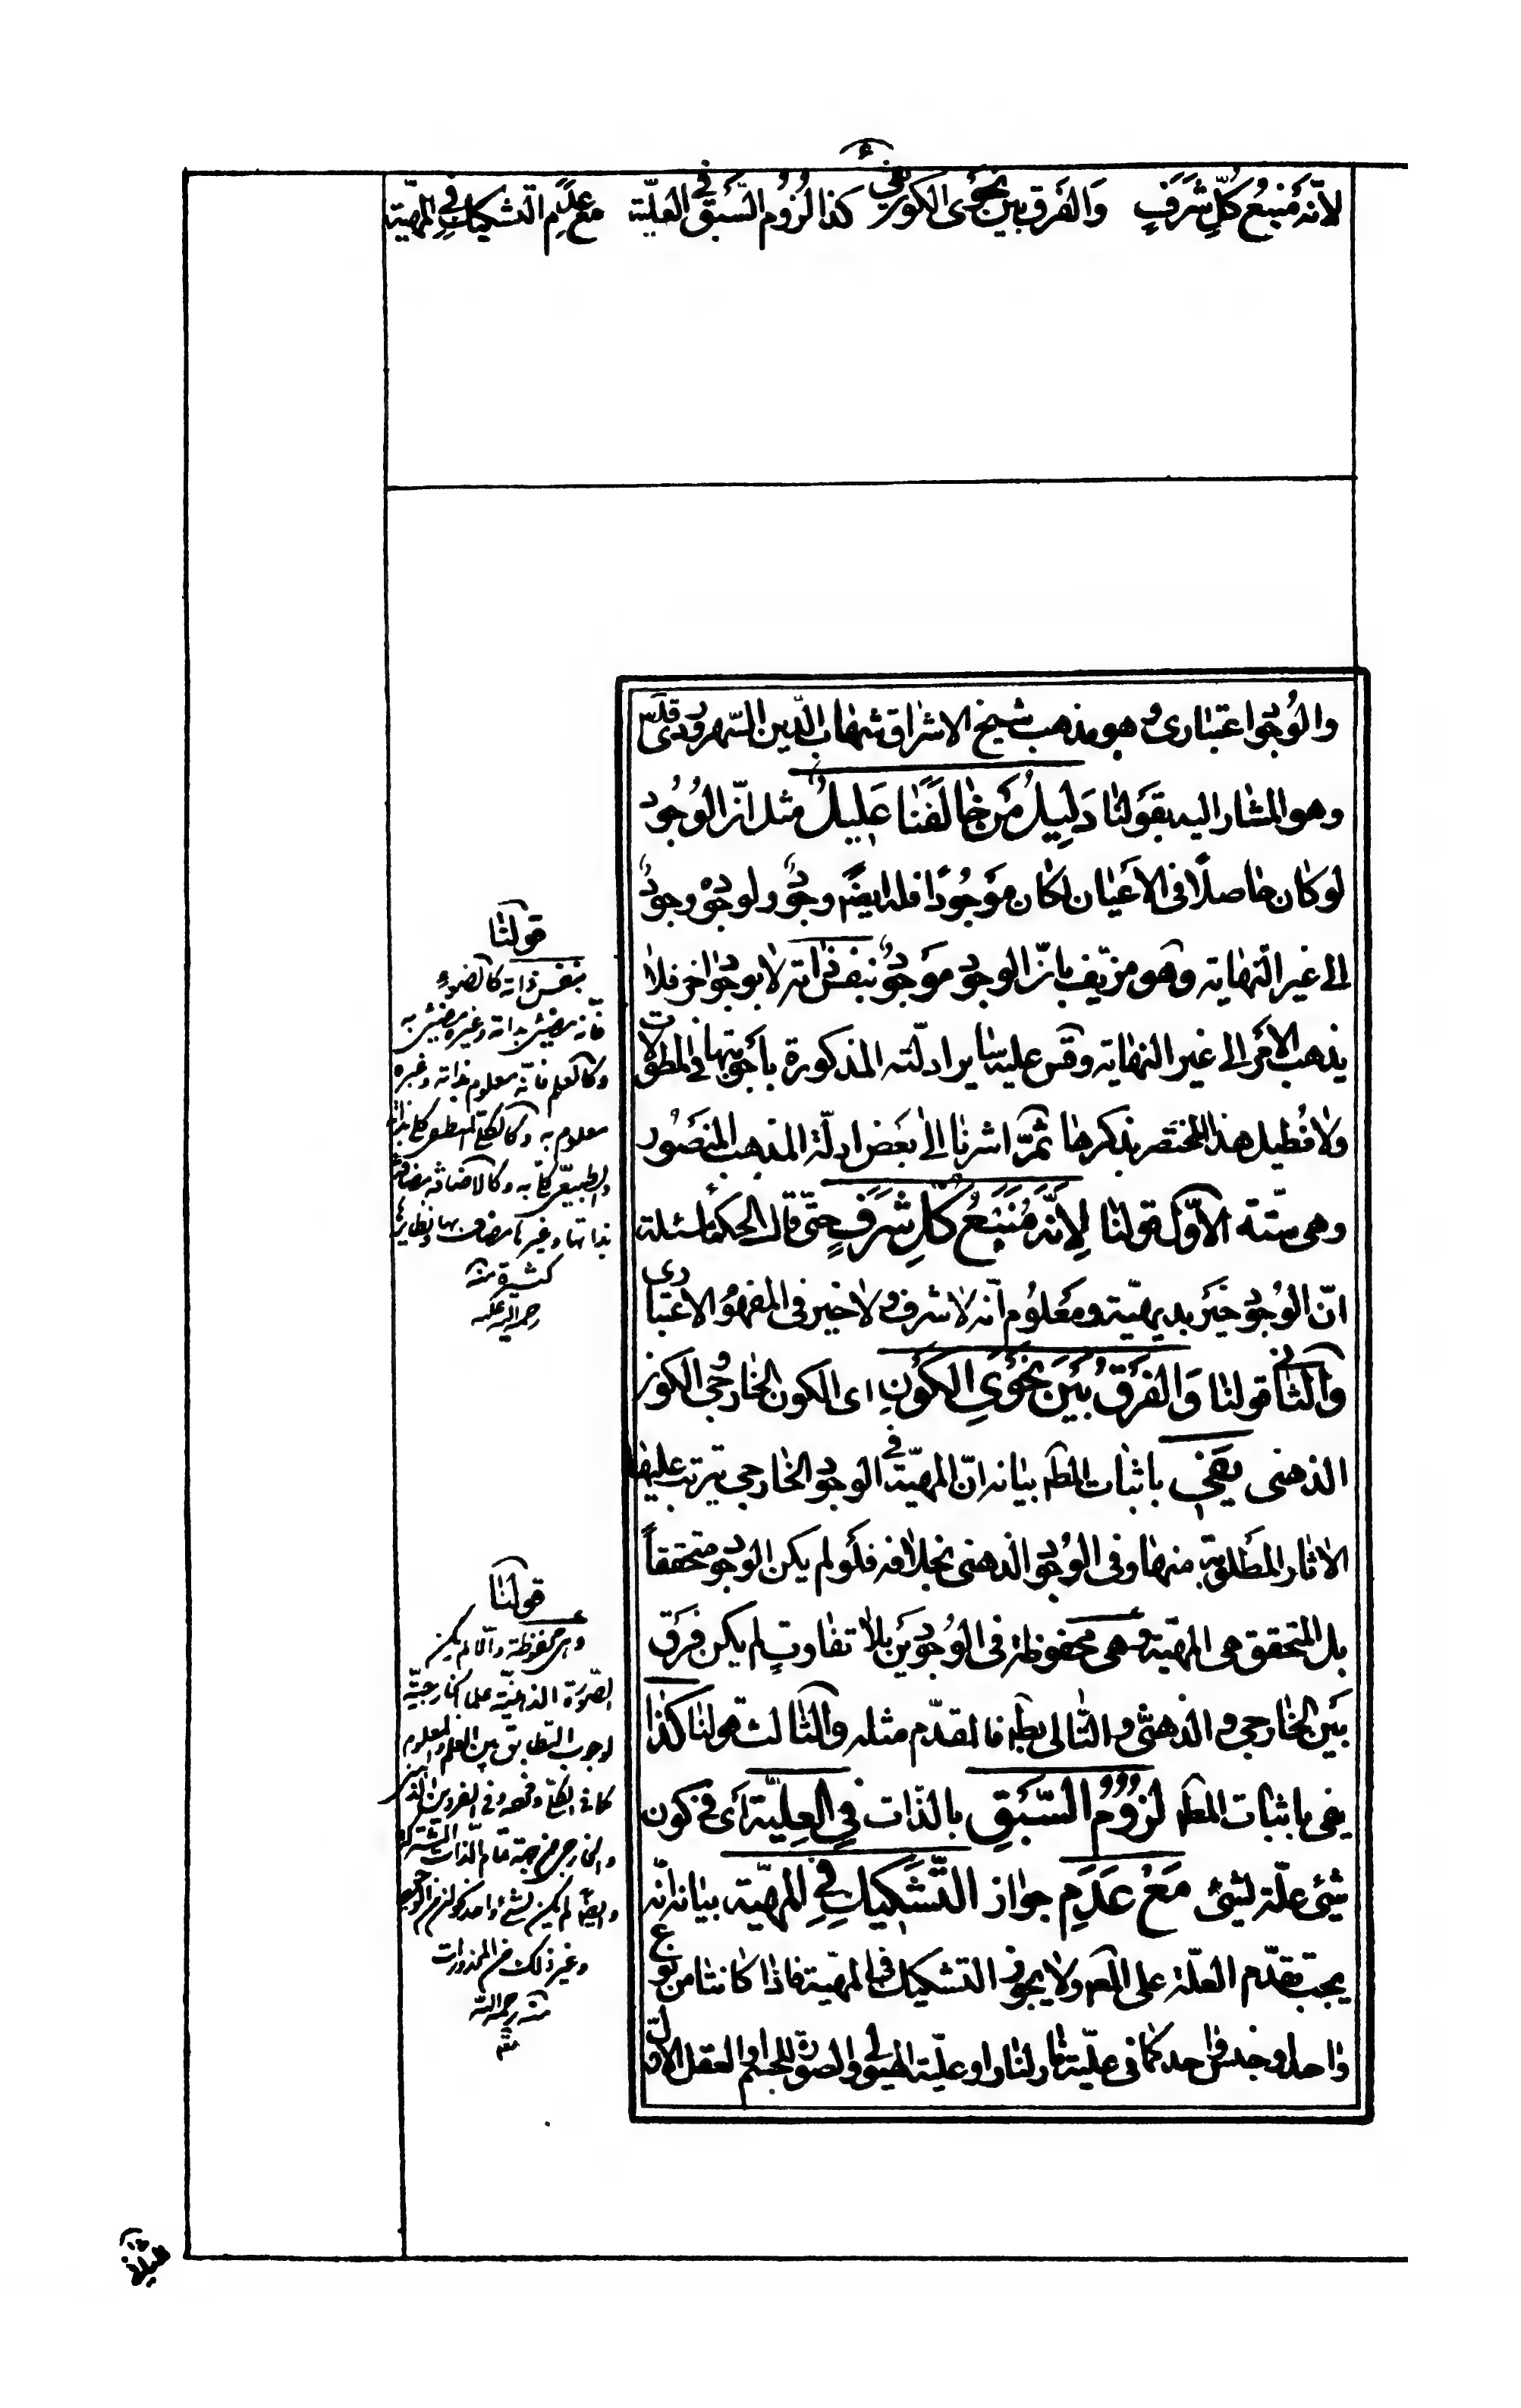 ع
لانّه مَنبَعُ كلِّ شَرَفٍ وَالفَرق بين نحوَى الكون يفى كذا لُزُوم السَّبَق فى العَلِيّة مَعَ عَدَمِ التشكيك فِى المهيّة
والوُجود اعتبارى و هو مذهب شيخ الاشراق شهاب الدّين السّهروردى قدس
وهو المشار اليه بقَولنا دَلِيلُ مَن خٰالَفَنٰا عَلِيلٌ مثل انّ الوُجُود
لو كان حاصلًا فى الاعَيان لكان مَوجُودًا فله ايضًا وجودٌ و لوجوده وجودٌ
الى غير النّهاية وهو مزيّف بانّ الوجود مَوجودٌ بنفس ذاته لا بوجود اخر فلا
يذهب الامَر الى غير النهاية وقس عليه ساير ادلّته المذكورة بأجوبتها فى المطولات
ولا نُطيل هذا المختصر بذكرها ثمّ اشرنا الىٰ بعَض ادلّة المذهب المنصَور
وهى ستّة الاوّل قولنا لِانَّهُ مَنبَعُ كُلِّ شَرَفٍ حتّى قال الحكماء مسئلة
انّ الوُجود خيَر بديهيّة ومعَلوُم انّه لا شرف ولا خير فى المفهوُم الاعتبارى
والثانى قولنا وَالفَرقُ بَينَ نَحوَىِ الكَونِ اى الكون الخارجى والكون
الذهنى يَفى باثبات المطه بيانه انّ المهيّة فى الوجود الخارجى يترتب عليها
الاثار المطَلوبة منها وفى الوُجود الذهنى بخلافه فلَو لم يكن الوجود متحققاً
بل المتحقق هى المهيّة وهى محفوظة فى الوُجودَين بلا تفاوتٍ لم يكن فرَق
بيَن الخارجى و الذهنىّ و التّالى بطه فالمقدّم مثله والثالث قولنا كَذا
يفى باثبات المطه لزُوُمُ السَّبَقِ بالذّات فِى العِلِيّة اى فى كون
شىئ علّة لشىئ مَعَ عَدَمِ جواز التَّشكيكِ فِى المهيّة بيانه انّه
يجب تقدّم العلّة على المعه ولا يجوز التشكيك فى المهيّة فاذا كانتا من نوع
واحد او جنس واحد كما فى علّية نار لنار او علّية الهيولى والصورة للجسم او العقل الاول
قولنا
بنفس ذاته كالضوء
فانّه مضيئ بذاته وغيره مضيئ به
وكالعلم فانّه معلوم بذاته وغيره
معلوم به وكالكلى المنطقى كلى بذاته
والطبيعى كلى به وكالاضافة مضافة
بذاتها وغيرها مضاف بها ونظايره
كثيرة منه
رحمة الله عليه
قولنا
وهى محفوظة والّا لم يكن
الصّورة الذهنيّة علما بالخارجيّة
لوجوب التطابق بين العلم والمعلوم
كما فى الكلى وفى الفردين الذهنى
والخارجى من جهة تمام الذات المشتركة
وايضًا لم يكن لشئ واحد
وغير ذلك من المحذورات
منه رحمه الله